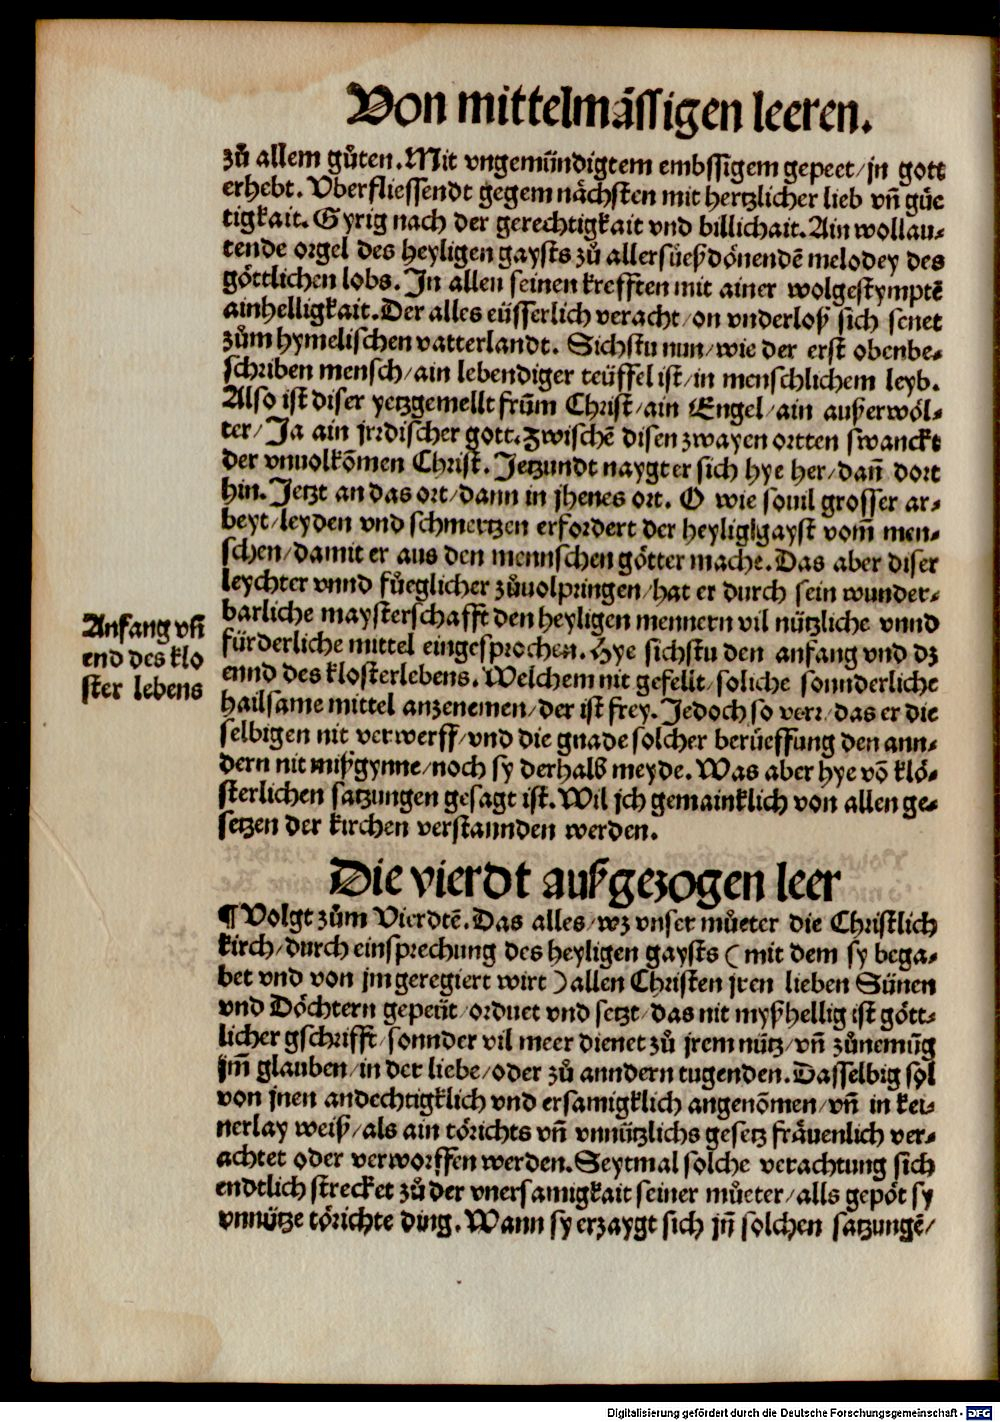 Von mittelmässigen leeren.
zů allem gůten. Mit vngemündigtem embssigem gepeet/ jn gott
erhebt. Vberfliessendt gegem nächsten mit hertzlicher lieb vñ güe
tigkait. Gyrig nach der gerechtigkait vnd billichait. Ain wollau-
tende orgel des heyligen gaysts zů allersüeß dönendē melodey des
göttlichen lobs. In allen seinen krefften mit ainer wolgestymptē
ainhelligkait. Der alles eüsserlich veracht/ on vnderloß sich senet
zům hymelischen vatterlandt. Sichstu nun/ wie der erst obenbe-
schriben mensch/ ain lebendiger teüffel ist/ in menschlichem leyb.
Also ist diser yetzgemellt frūm Christ/ ain Engel/ ain außerwöl-
ter/ Ja ain jrrdischer gott. Zwischē disen zwayen ortten swanckt
der vnuolkōmen Christ. Jetzundt naygt er sich hye her/ dañ dort
hin. Jetzt an das ort/ dann in jhenes ort. O wie souil grosser ar-
beyt/ leyden vnd schmertzen erfordert der heylig gayst vom̄ men-
schen/ damit er aus den mennschen götter mache. Das aber diser
leychter vnnd füeglicher zůuolpringen/ hat er durch sein wunder-
barliche maysterschafft den heyligen mennern vil nützliche vnnd
fürderliche mittel eingesprochen. Hye sichstu den anfang vnd dz
ennd des klosterlebens. Welchem nit gefellt/ soliche sonnderliche
hailsame mittel anzenemen/ der ist frey. Jedoch so verr/ das er die
selbigen nit verwerff/ vnd die gnade solcher berüeffung den ann-
dern nit mißgynne/ noch sy derhalb meyde. Was aber hye vō klö-
sterlichen satzungen gesagt ist. Wil jch gemainklich von allen ge-
setzen der kirchen verstannden werden.
Anfang vñ
end des klo
ster lebens
Die vierdt außgezogen leer
¶ Volgt zům Vierdtē. Das alles/ wz vnser můeter die Christlich
kirch/ durch einsprechung des heyligen gaysts ( mit dem sy bega-
bet vnd von jm geregiert wirt ) allen Christen jren lieben Sünen
vnd Döchtern gepeüt/ ordnet vnd setzt/ das nit myßhellig ist gött-
licher gschrifft/ sonnder vil meer dienet zů jrem nütz/ vñ zůnemūg
jm̄ glauben/ in der liebe/ oder zů anndern tugenden. Dasselbig sol
von jnen andechtigklich vnd ersamigklich angenōmen/ vñ in kei-
nerlay weiß/ als ain törichts vñ vnnützlichs gesetz fräuenlich ver-
achtet oder verworffen werden. Seytmal solche verachtung sich
endtlich strecket zů der vnersamigkait seiner můeter/ alls gepöt sy
vnnütze törichte ding. Wann sy erzaygt sich jñ solchen satzungē/
Digitalisierung gefördert durch die Deutsche Forschungsgemeinschaft - DFG